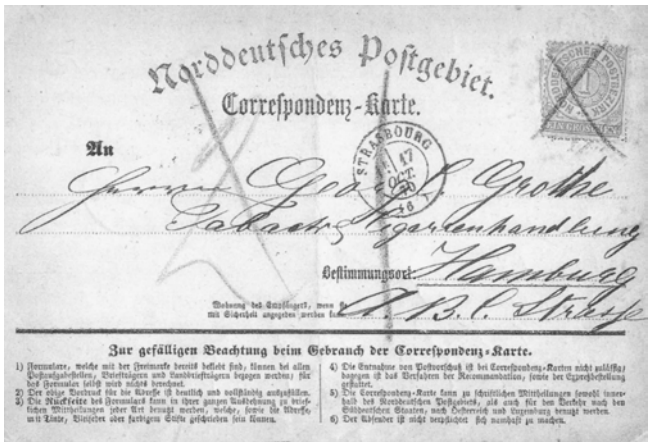 Norddeutsches Postgebiet.
NORDDEUTSCHER POSTBEZIRK
1
EIN GROSCHEN
Correspondenz-Karte.
An
STRASBOURG
17
OCT.
70
Herrn Geo. L. Grothe
Taback & Cigarrenhandlung
Bestimmungsort: Hamburg
Wohnung des Empfängers, wenn sie
mit Sicherheit angegeben werden kann
A. B. C. Strasse
Zur gefälligen Beachtung beim Gebrauch der Correspondenz-Karte.
1) Formulare, welche mit der Freimarke bereits beklebt sind, können bei allen
Postaufgabestellen, Briefträgern und Landbriefträgern bezogen werden; für
das Formular selbst wird nichts berechnet.
2) Der obige Vordruck für die Adresse ist deutlich und vollständig auszufüllen.
3) Die Rückseite des Formulars kann in ihrer ganzen Ausdehnung zu brief-
lichen Mittheilungen jeder Art benutzt werden, welche, sowie die Adresse,
mit Tinte, Bleifeder oder farbigem Stifte geschrieben sein können.
4) Die Entnahme von Postvorschuß ist bei Correspondenz-Karten nicht zulässig;
dagegen ist das Verfahren der Recommandation, sowie der Expreßbestellung
gestattet.
5) Die Correspondenz-Karte kann zu schriftlichen Mittheilungen sowohl inner-
halb des Norddeutschen Postgebiets, als auch für den Verkehr nach den
Süddeutschen Staaten, nach Oesterreich und Luxemburg benutzt werden.
6) Der Absender ist nicht verpflichtet sich namhaft zu machen.